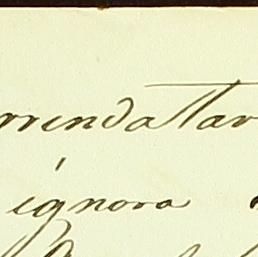 rrendatar
ignora